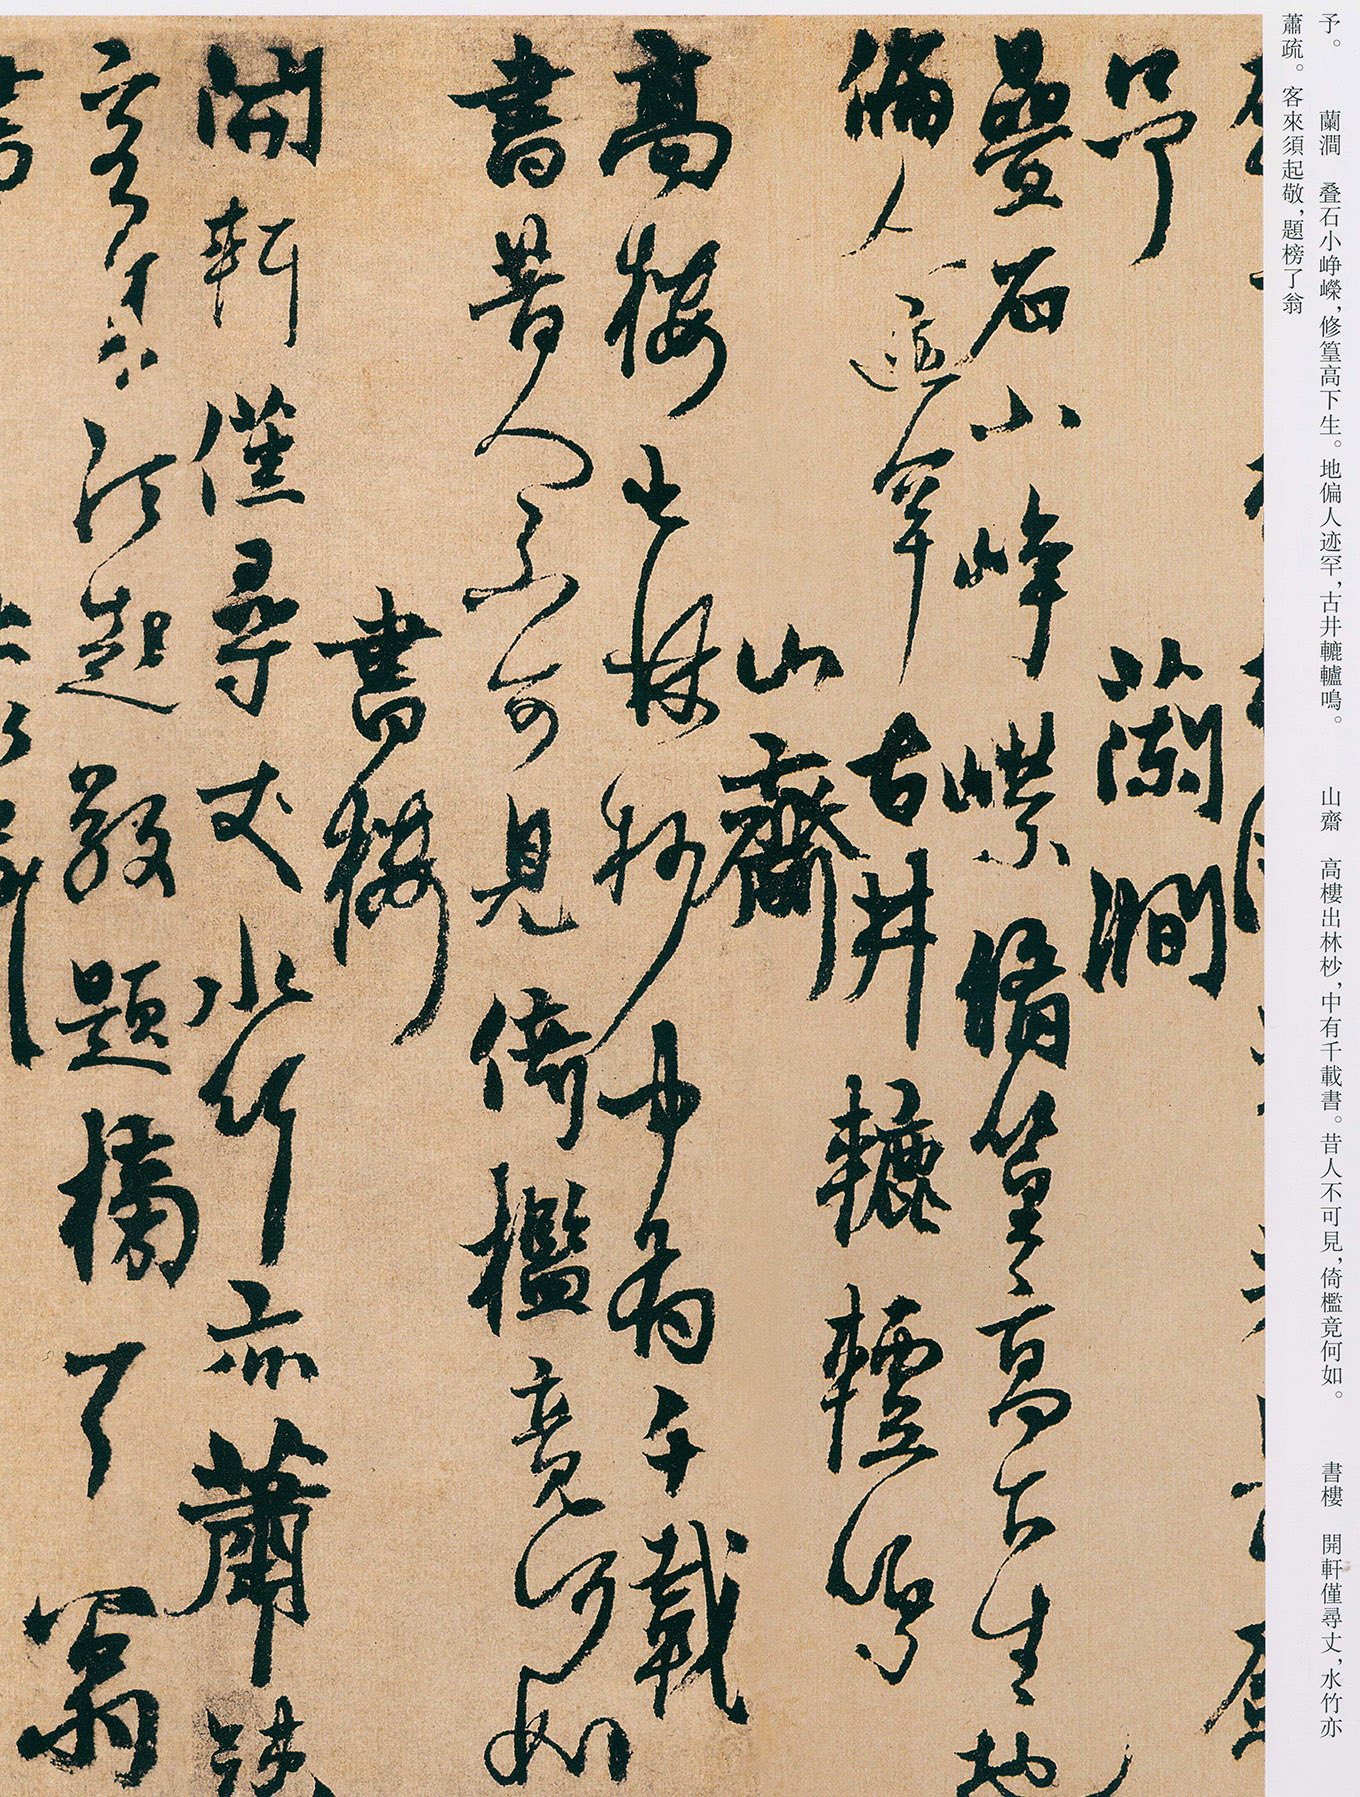 予。　蘭澗　叠石小峥嶸，修篁高下生。地偏人迹罕，古井轆轤鳴。　山齋　高樓出林杪，中有千載書。昔人不可見，倚檻竟何如。　書樓　開軒僅尋丈，水竹亦
蕭疏。客來須起敬，題榜了翁
予　蘭澗
疊石小峥嶸脩篁高下生地
偏人迹罕古井轆轤鳴
山齋
高樓出林杪中有千載
書昔人不可見倚檻竟何如
書樓
開軒僅尋丈水竹亦蕭疎
客來須起敬題榜了翁